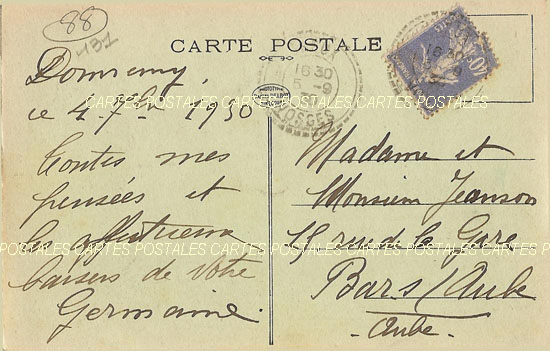 88
131
CARTE POSTALE
16 30
5 -9
VOSGES
40c
Domremy,
le 4.7bre 1930
Toutes mes
pensées et
les affectueux
baisers de votre
Germaine.
Madame et
Monsieur Jeanson
rue de la Gare
Bars/Aube
Aube.
CARTES POSTALES CARTES POSTALES CARTES POSTALES CARTES POSTALES
POSTALES CARTES POSTALES CARTES POSTALES CARTES POSTALES CARTES